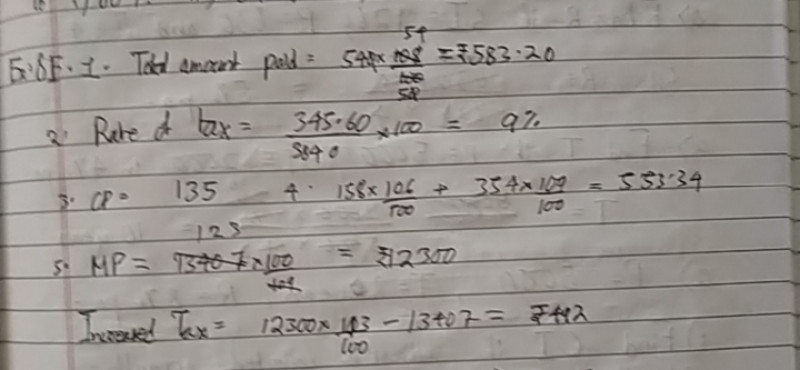 Ex. 8E. 1. Total amount paid = 540 × 108/100 = ₹583.20
54
50
2. Rate of tax = 345.60/3840 × 100 = 9%
3. CP = 135 4. 158 × 106/100 + 354 × 109/100 = 553.34
123
5. MP = 13407 × 100/109 = ₹12300
Increased Tax = 12300 × 113/100 - 13407 = ₹492